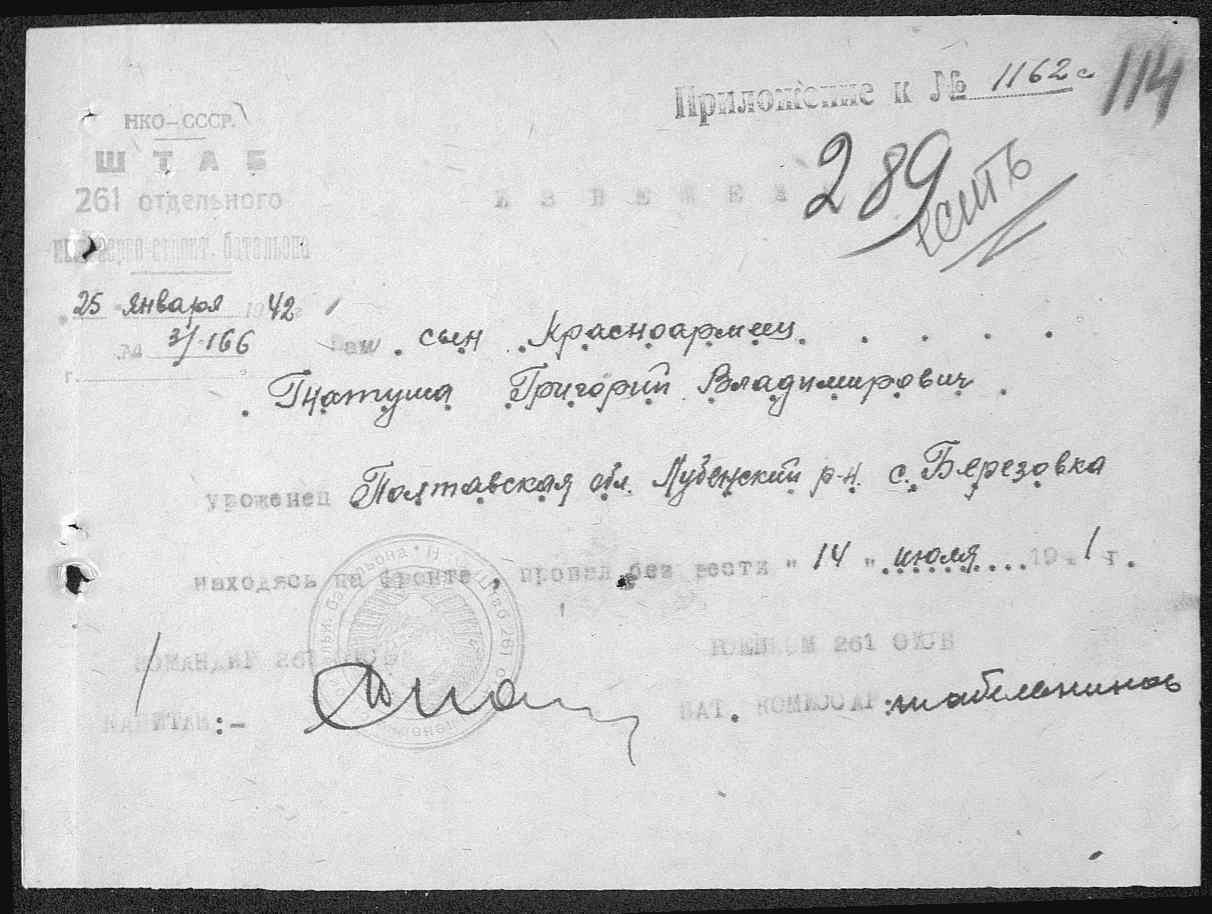 Приложение к № 1162с
114
НКО-СССР.
ШТАБ
261 отдельного
строит. батальона
289
есть
ИЗВЕЩЕНИЕ
25 января 1942 г
№ 3/-166
г.
Ваш . сын . Красноармеец . . . .
. Гнатуша Григорий Владимирович .
уроженец Полтавская обл. Лубенский р-н. с. Березовка
находясь на фронте, пропал без вести "14" июля 19 1 г.
КОМАНДИР 261 ОИСБ
ВОЕНКОМ 261 ОИСБ
КАПИТАН:-
БАТ. КОМИССАР: